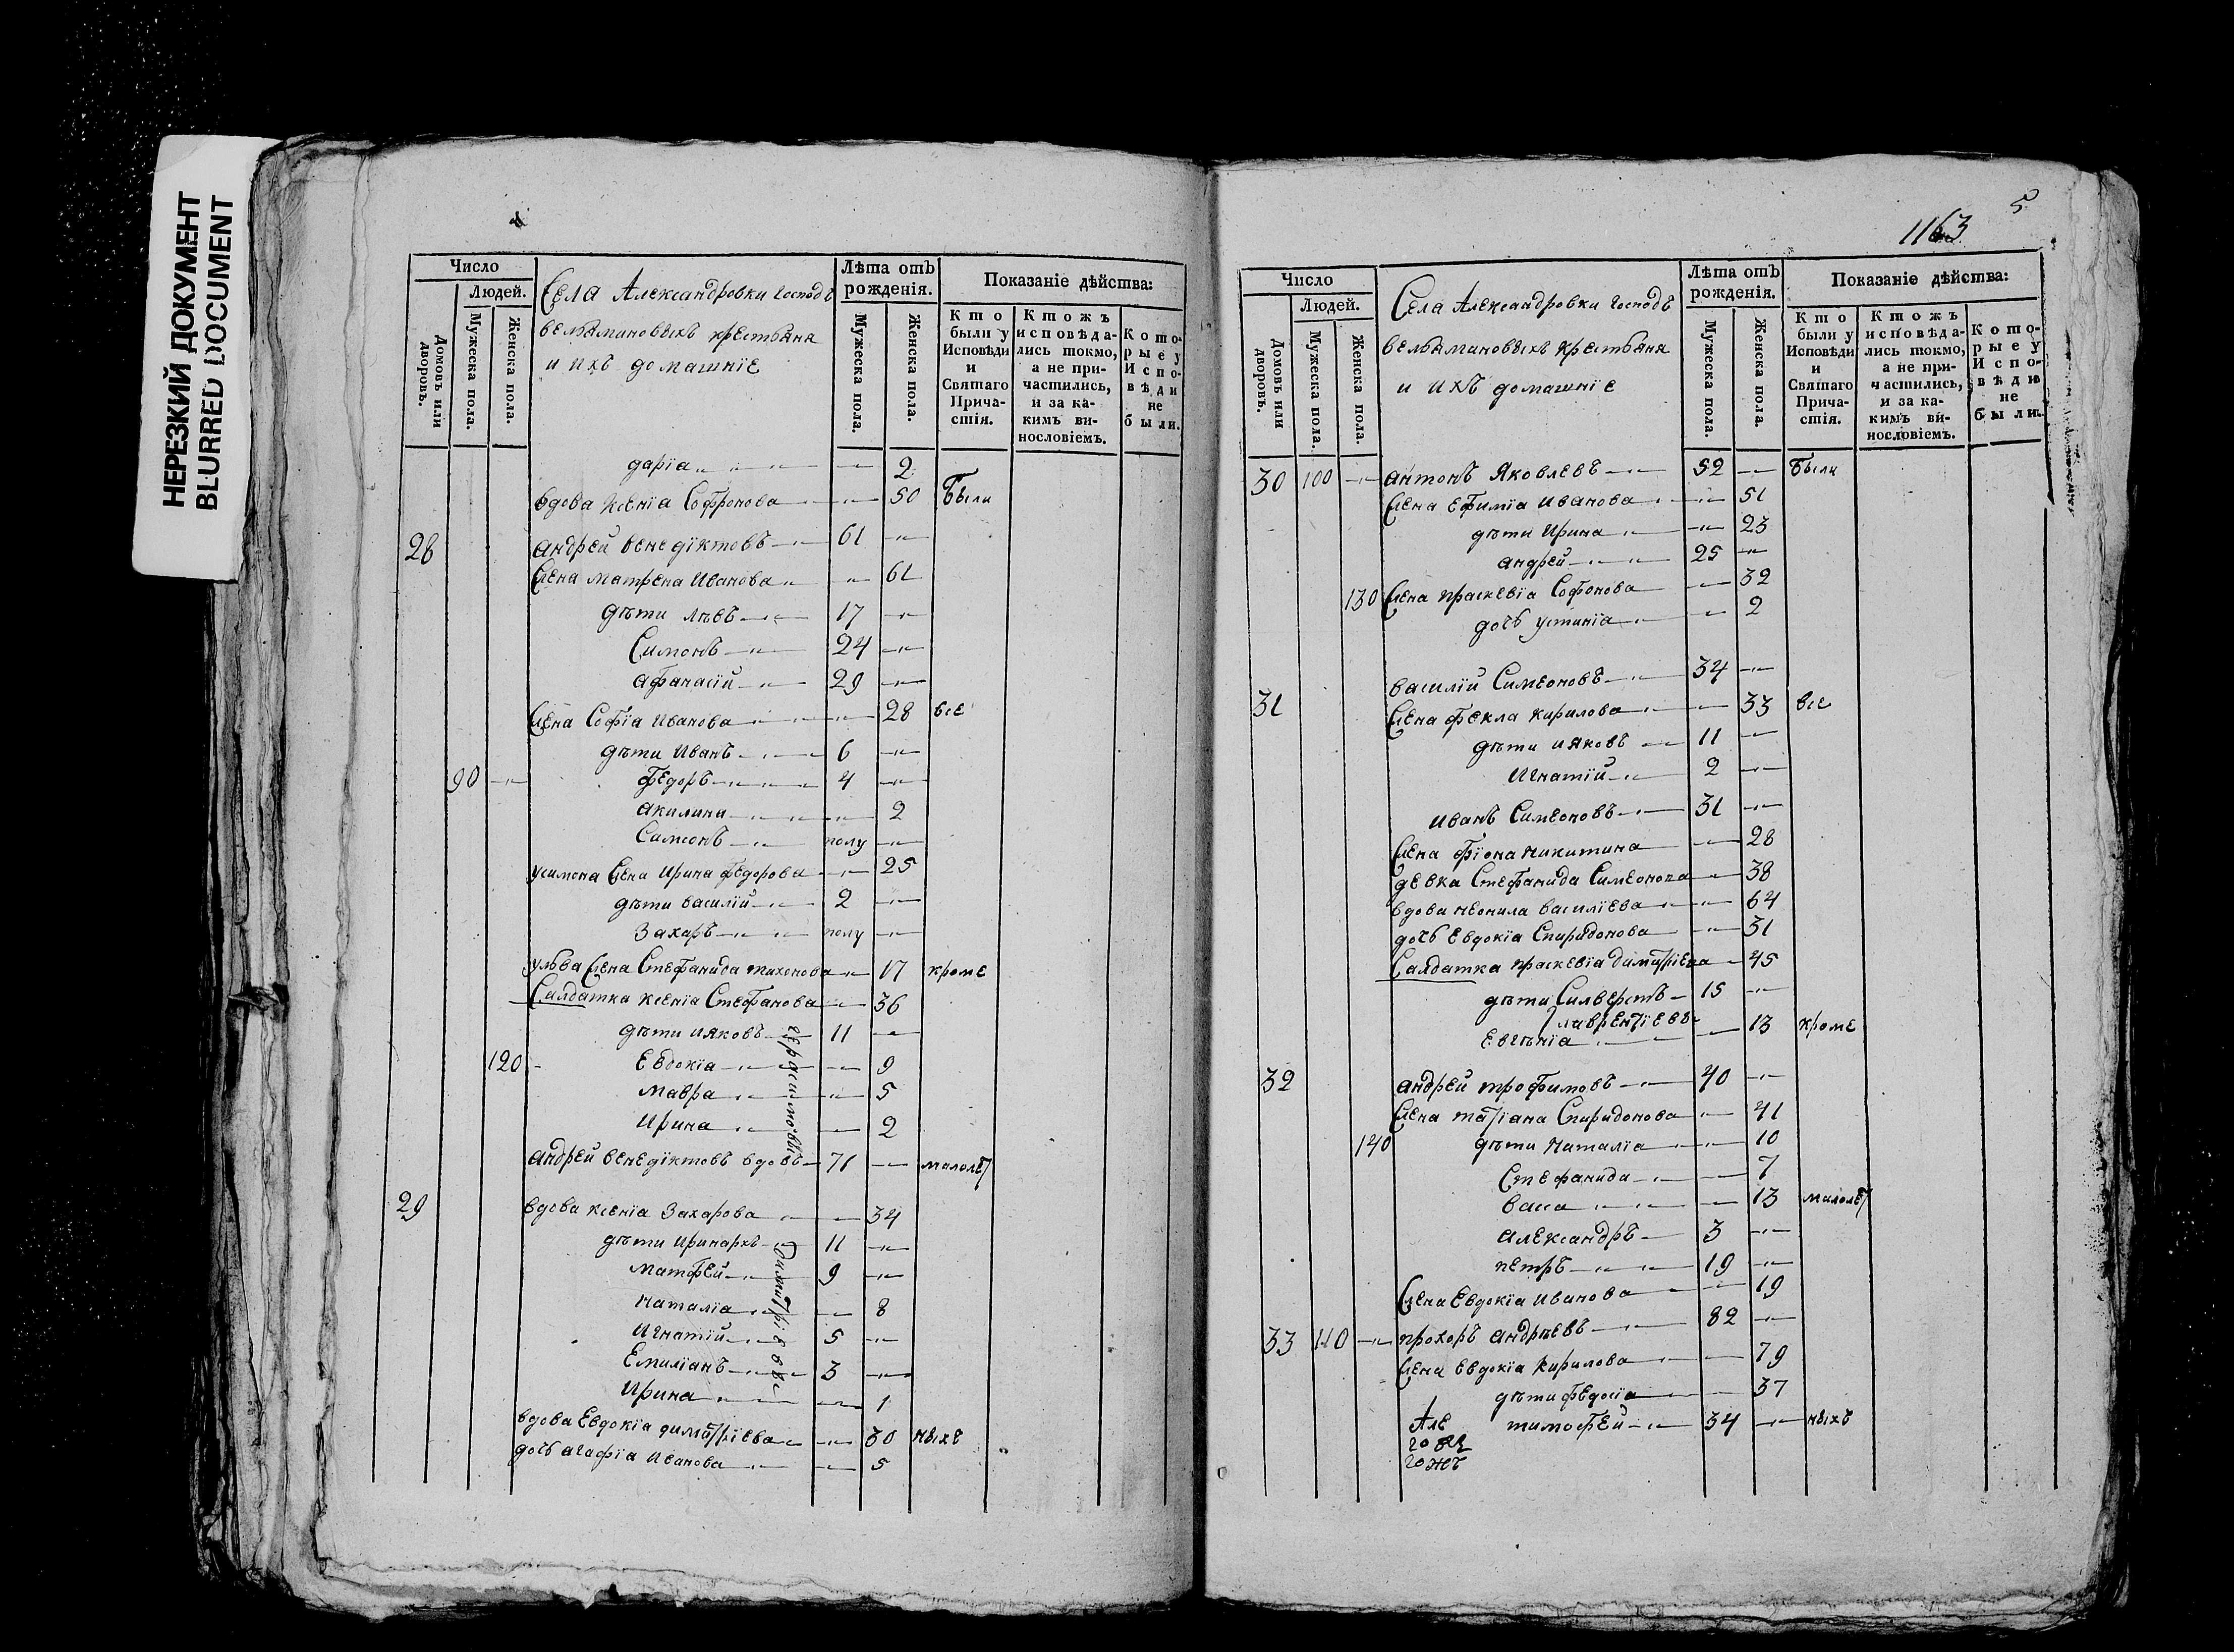 НЕРЕЗКИЙ ДОКУМЕНТ
BLURRED DOCUMENT
Число
Людей.
Домовъ или дворовъ.
Мужеска пола.
Женска пола.
Села Александровки господъ
вельяминовыхъ крестьяна
и ихъ домашнїе
Лѣта отъ рожденія.
Мужеска пола.
Женска пола.
Показаніе дѣйства:
Кто были у Исповѣди и Святаго Причастія.
Ктожъ исповѣдались токмо, а не причастились, и за какимъ винословіемъ.
Которые у Исповѣди не были.
дарїа 2
вдова Ксенїа Софронова 50 Были
28 андрей венедїктовъ 61
жена матрена Иванова 61
дѣти Лѣвъ 17
Симонъ 24
афанасїй 29
жена Софїа Иванова 28 все
дѣти Иванъ 6
90 федоръ 4
акилина 2
Симеонъ полу
усимона жена Ирина федорова 25
дѣти василїй 2
Захаръ полу
ульва жена Стефанида тихонова 17 кроме
Салдатка ксенїа Стефанова 36
дѣти ияковъ 11
120 Евдокїа 9
мавра 5
Ирина 2
герасимовы
андрей венедїктовъ вдовъ 71 малолѣт
29 вдова ксенїа Захарова 34
дѣти Иринархъ 11
матфей 9
наталїа 8
Игнатїй 5
Емилїанъ 3
Ирина 1
димитрїевы
вдова Евдокїа димитрїева 30 ныхъ
дочь агафїа Иванова 5
1163
5
Число
Людей.
Домовъ или дворовъ.
Мужеска пола.
Женска пола.
Села Александровки господъ
вельяминовыхъ крестьяна
и ихъ домашнїе
Лѣта отъ рожденія.
Мужеска пола.
Женска пола.
Показаніе дѣйства:
Кто были у Исповѣди и Святаго Причастія.
Ктожъ исповѣдались токмо, а не причастились, и за какимъ винословіемъ.
Которые у Исповѣди не были.
30 100 антонъ Яковлевъ 52 Были
жена Ефимїа Иванова 51
дѣти Ирина 23
андрей 25
130 жена праскевїа Софонова 32
дочь устинїа 2
31 василїй Симеоновъ 34
жена фекла кирилова 33 все
дѣти ияковъ 11
Игнатїй 2
иванъ Симеоновъ 31
жена фїона никитина 28
девка Стефанида Симеонова 38
вдова неонила василїева 64
дочь Евдокїа Спиридонова 31
Салдатка праскевїа димитрїева 45
дѣти Силверстъ 15
лаврентїевы
Евгѣнїа 13 кроме
32 андрей трофимовъ 40
жена татїана Спиридонова 41
140 дѣти наталїа 10
Стефанида 7
васа 13 малолѣт
александръ 3
петръ 19
жена Евдокїа Иванова 19
33 110 прохоръ андрѣевъ 82
жена евдокїа кирилова 79
дѣти федосїа 37
тимофей 34 ныхъ
Але